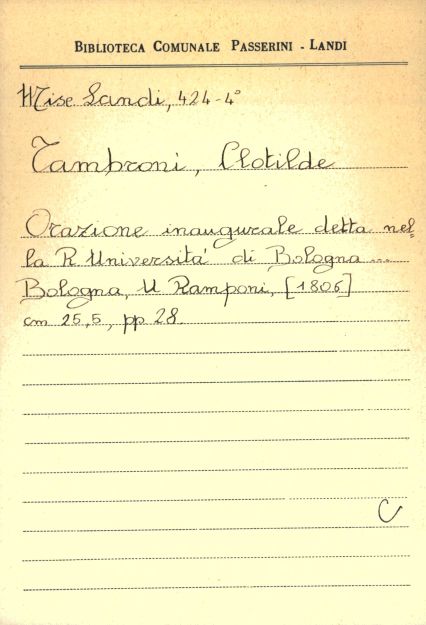 BIBLIOTECA COMUNALE PASSERINI - LANDI
Misc Landi, 424-4°
Tambroni, Clotilde
Orazione inaugurale detta nel=
la R Università di Bologna ...
Bologna, U Ramponi, [1806]
cm 25,5, pp 28.
C